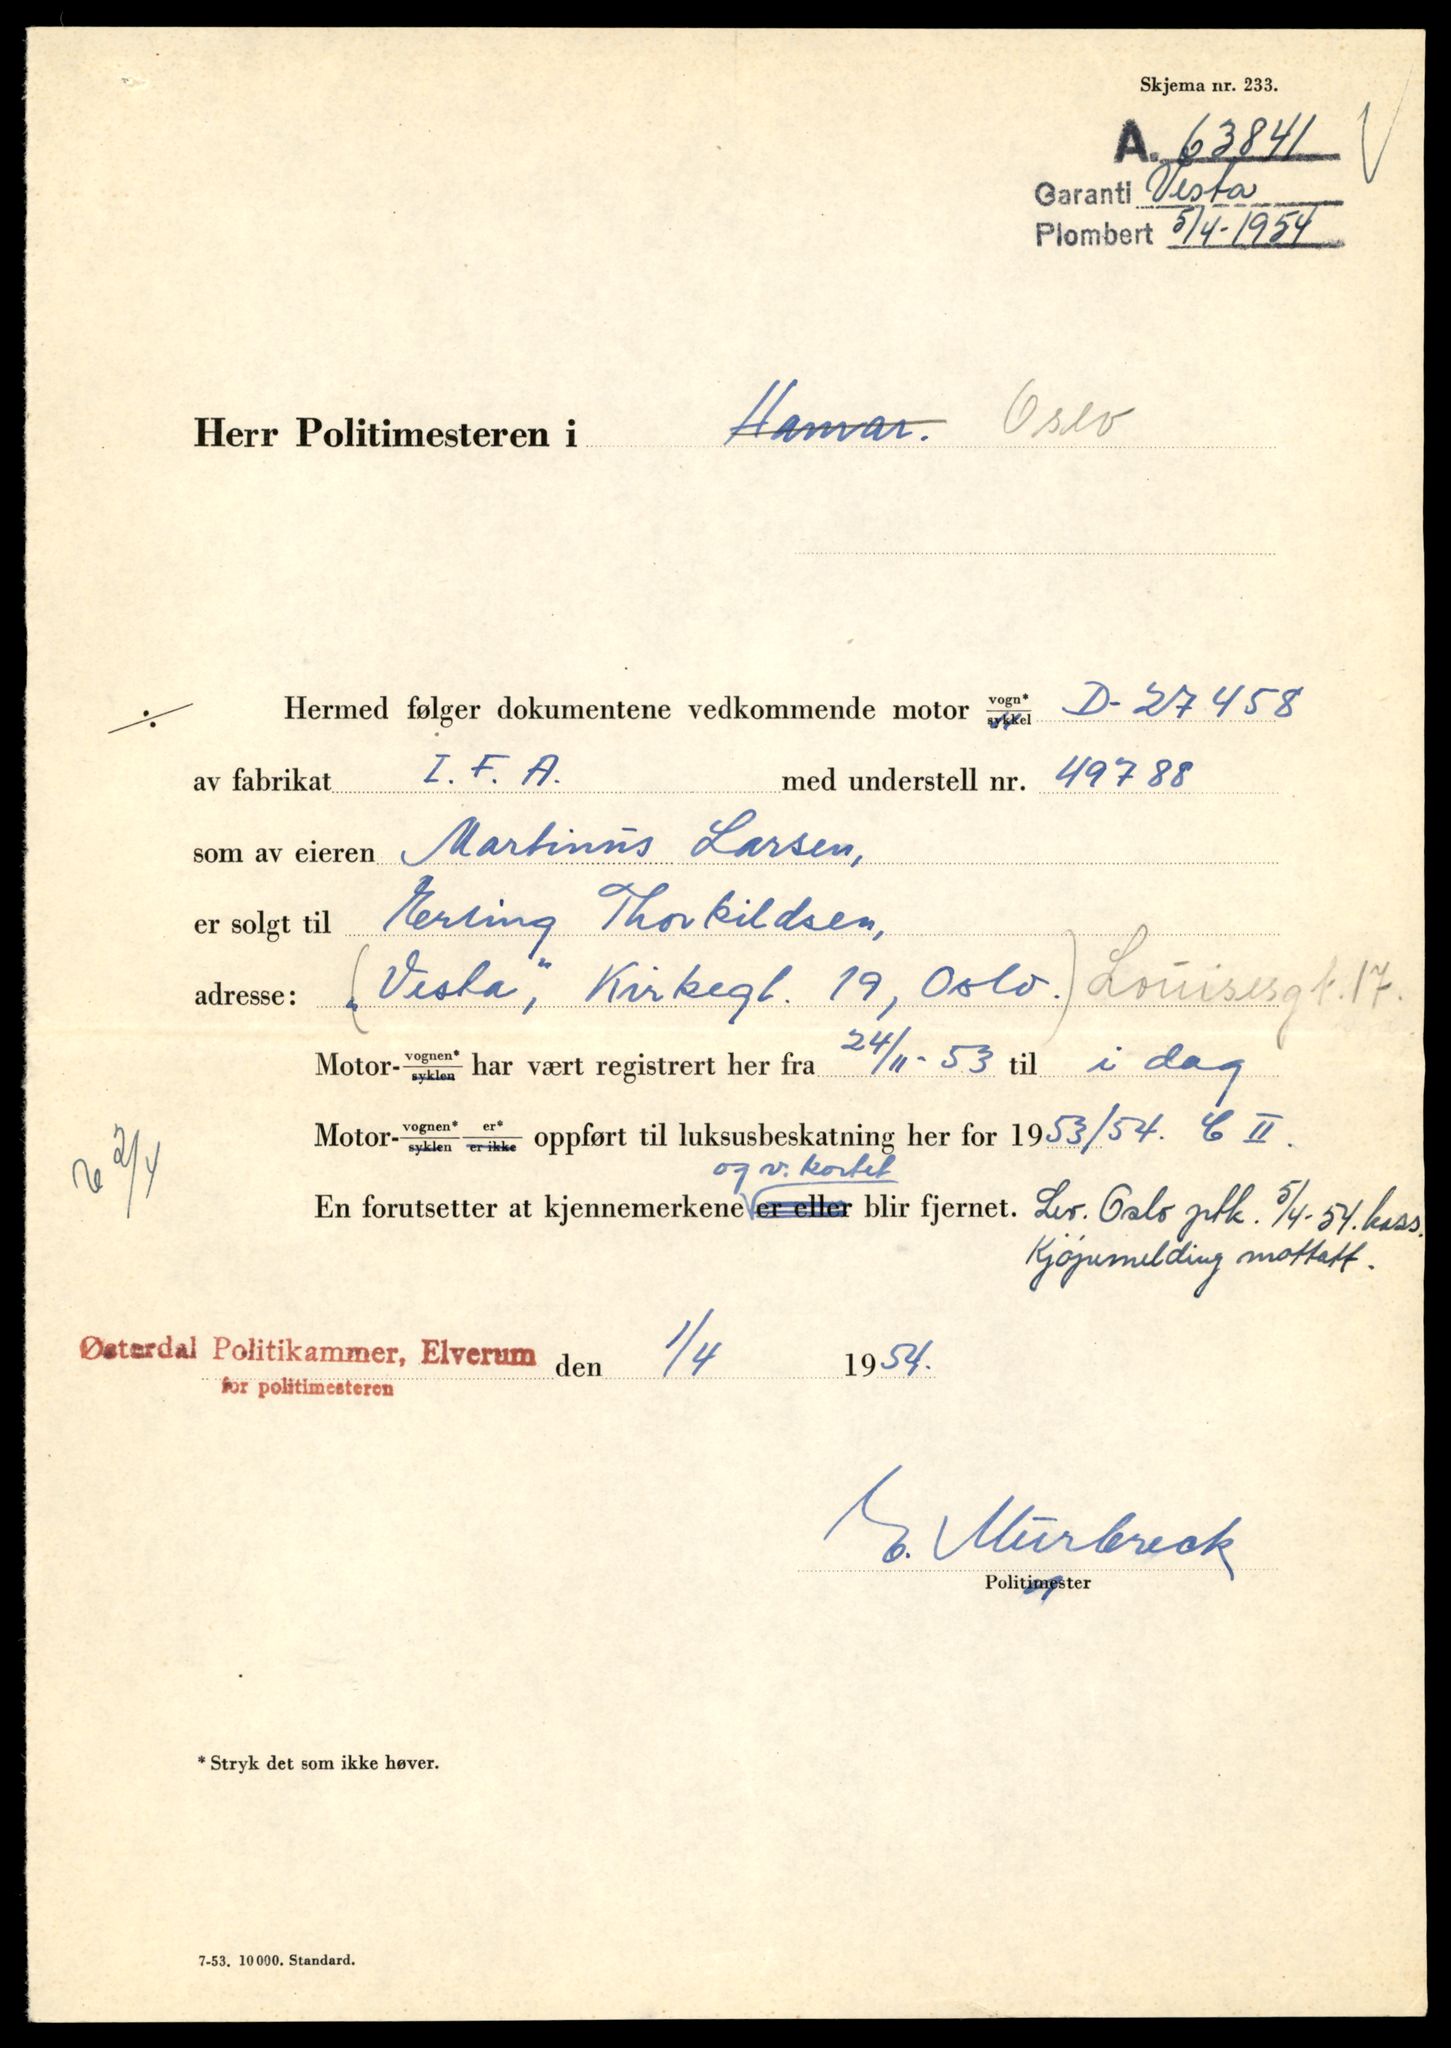 Skjema nr. 233.
A. 63841
Garanti Vesta
Plombert 5/4-1954
Herr Politimesteren i Hamar. Oslo
÷ Hermed følger dokumentene vedkommende motor vogn* sykkel D-27458
av fabrikat I. F. A. med understell nr. 49788
som av eieren Martinus Larsen,
er solgt til Herling Thorkildsen,
adresse: („Vesta", Kirkegt. 19, Oslo.) Louisesgt. 17.
Motor- vognen* syklen har vært registrert her fra 24/11-53 til i dag
Motor- vognen* syklen er* er ikke oppført til luksusbeskatning her for 1953/54. C II.
2/4
og v. kortet
En forutsetter at kjennemerkene er eller blir fjernet. Lev. Oslo plk. 5/4-54. kass.
Kjøpemelding mottatt.
Østerdal Politikammer, Elverum den 1/4 1954.
for politimesteren
E. Murbreck
Politimester
* Stryk det som ikke høver.
7-53. 10000. Standard.